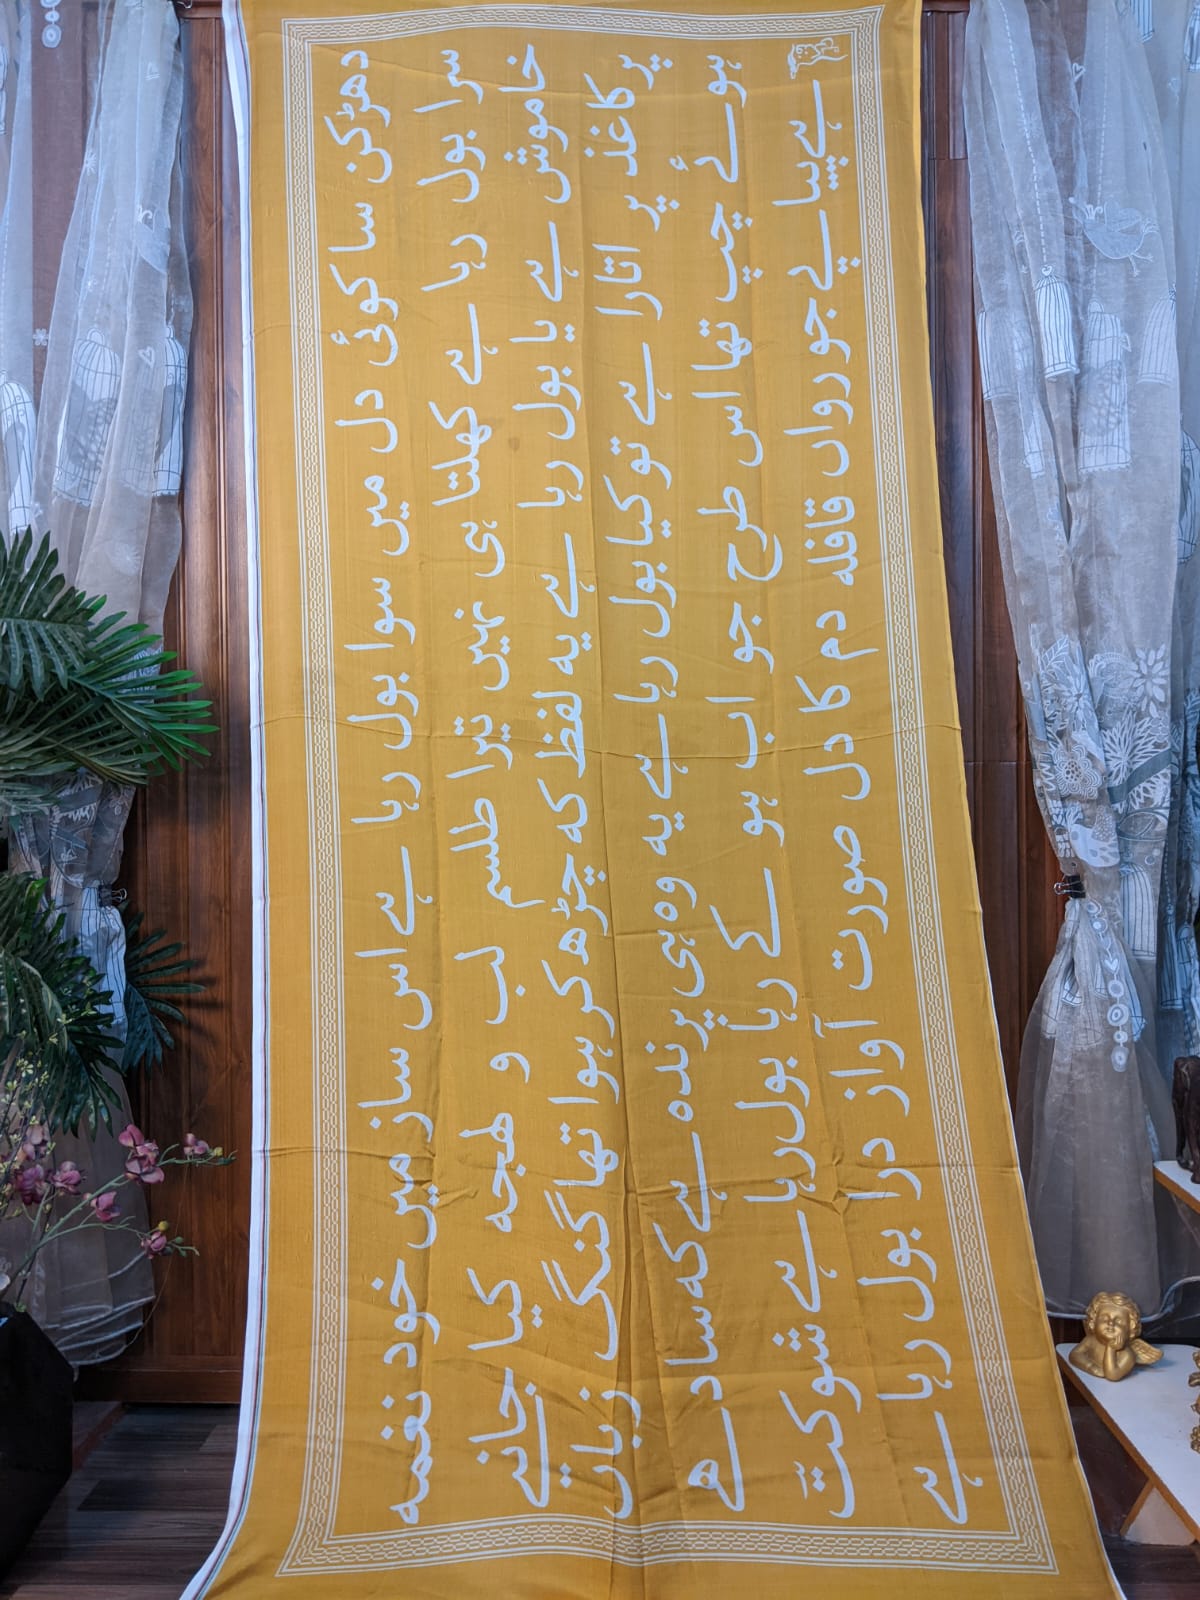 دھڑکن سا کوئی دل میں سوا بول رہا ہے اس ساز میں خود نغمہ
سرا بول رہا ہے کھلتا ہی نہیں تیرا طلسم لب و لہجہ کیا جانے
خاموش ہے یا بول رہا ہے یہ لفظ کہ چڑھ کر ہوا تھا گنگ زباں
پر کاغذ پر اتارا ہے تو کیا بول رہا ہے یہ وہ ہی پرندہ ہے کہ سادھے
ہوئے چپ تھا اس طرح جو اب ہو کے رہا بول رہا ہے شوکتؔ
ہے پیاپے جو رواں قافلہ دم کا دل صورت آواز درا بول رہا ہے